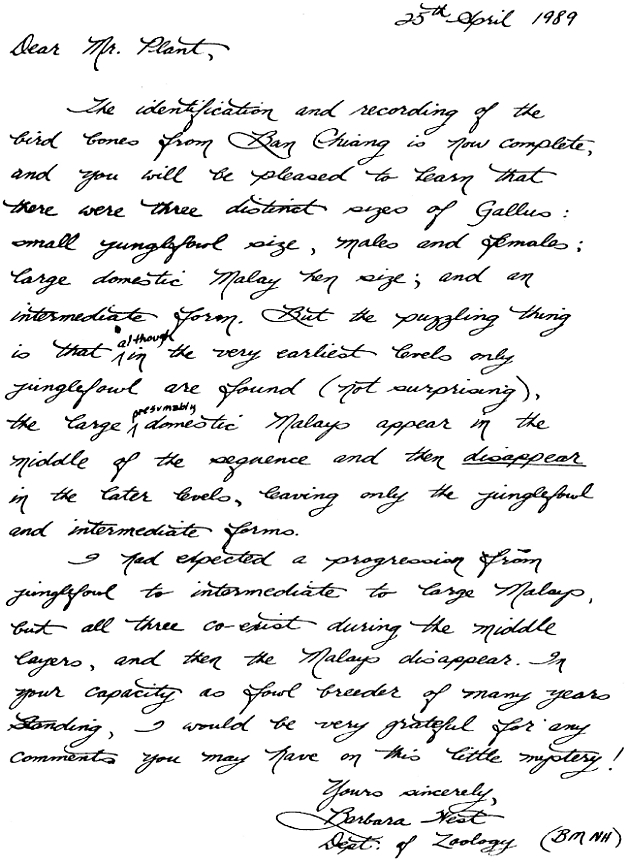 25th April 1989
Dear Mr. Plant,
The identification and recording of the
bird bones from Ban Chiang is now complete,
and you will be pleased to learn that
there were three distinct sizes of Gallus:
small junglefowl size, males and females;
large domestic Malay hen size; and an
intermediate form. But the puzzling thing
is that although in the very earliest levels only
junglefowl are found (not surprising),
the large presumably domestic Malays appear in the
middle of the sequence and then disappear
in the later levels, leaving only the junglefowl
and intermediate forms.
I had expected a progression from
junglefowl to intermediate to large Malays,
but all three co-exist during the middle
layers, and then the Malays disappear. In
your capacity as fowl breeder of many years
standing, I would be very grateful for any
comments you may have on this little mystery!
Yours sincerely,
Barbara West
Dept. of Zoology (BMNH)